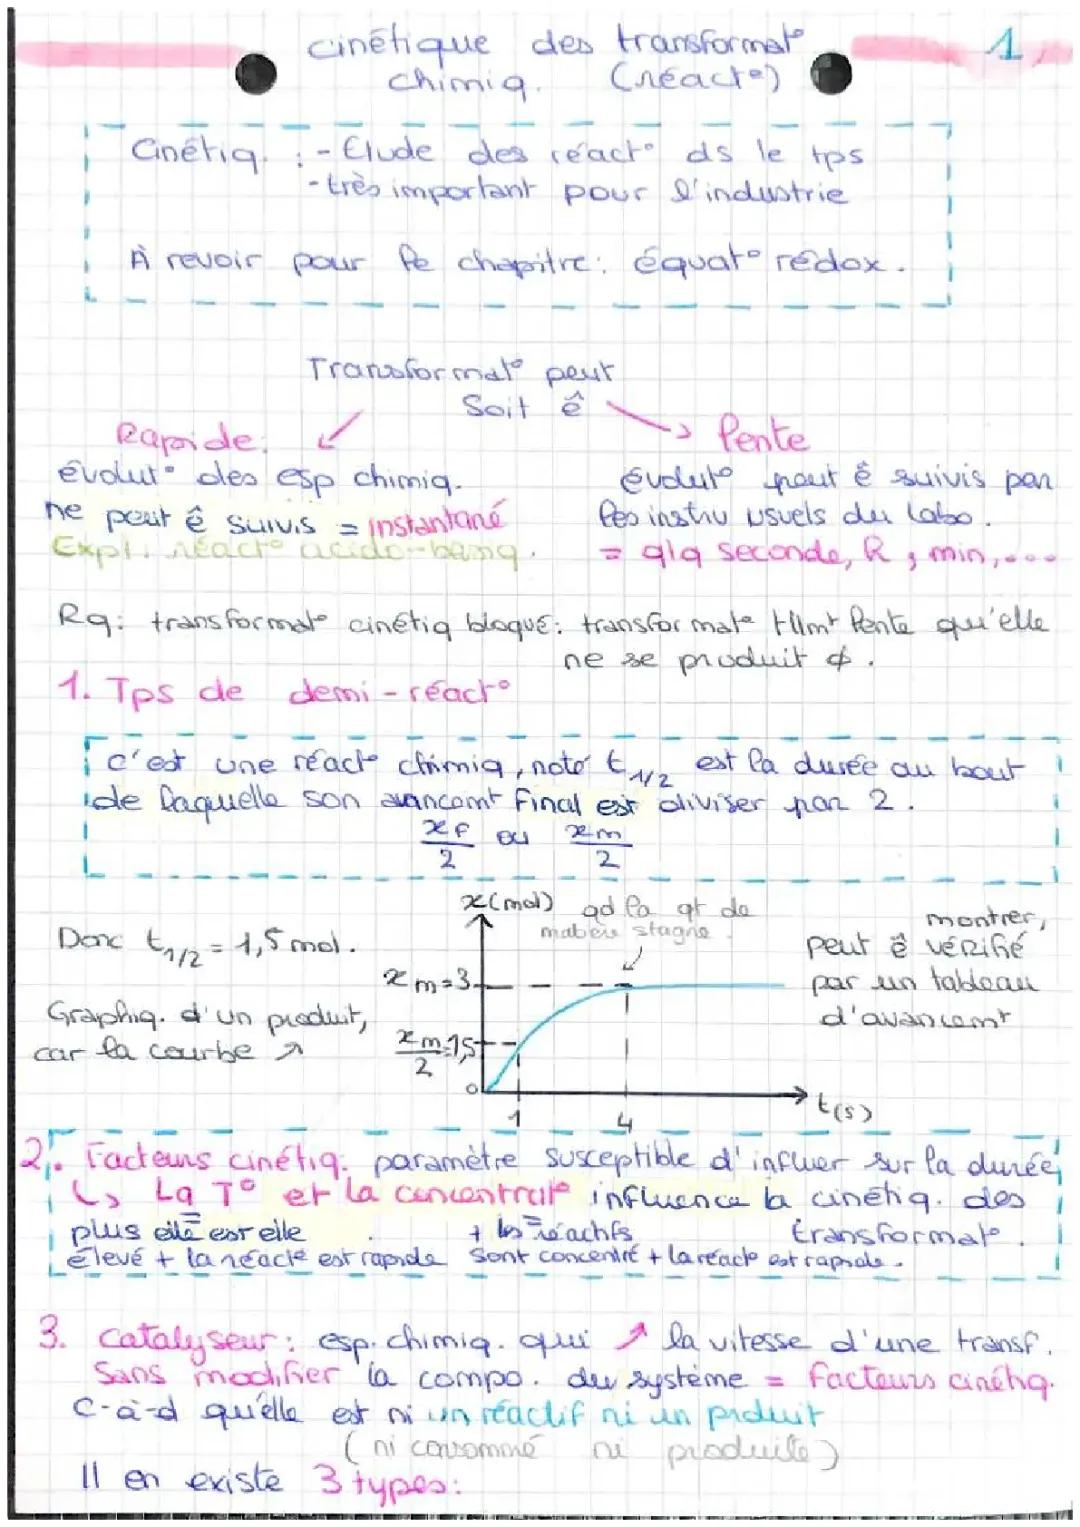 cinétique des transformat°
chimiq. (réact°)
1
Cinétiq. : - Etude des réact° ds le tps
- très important pour l'industrie
À revoir pour le chapitre: équat° rédox.
Transformat° peut
Soit ê
Rapide:
évolut° des esp chimiq.
ne peut ê suivis = instantané
Expl: réact° acido-basiq.
Lente
évolut° peut ê suivis par
les instru usuels du labo.
= qlq seconde, h, min,...
Rq: transformat° cinétiq bloqué: transformat° tllmt lente qu'elle
ne se produit ∅.
1. Tps de demi-réact°
c'est une réact° chimiq, noté t1/2 est la durée au bout
de laquelle son avancemt final est diviser par 2.
xf/2 ou xm/2
Donc t1/2 = 1,5 mol.
Graphiq. d'un produit,
car la courbe ↗
x(mol)
qd la qt de
matière stagne.
xm=3
xm/2=1,5
0
1
4
t(s)
montrer,
peut ê vérifié
par un tableau
d'avancemt
2. Facteurs cinétiq: paramètre susceptible d'influer sur la durée,
↳ La T° et la concentrat° influence la cinétiq. des
transformat°.
plus elle est elle
élevé + la réact° est rapide
+ les réactifs
sont concentré + la réact° est rapide.
3. Catalyseur: esp. chimiq. qui ↗ la vitesse d'une transf.
Sans modifier la compo. du système = facteurs cinétiq.
C-à-d qu'elle est ni un réactif ni un produit
(ni consommé ni produite)
Il en existe 3 types: